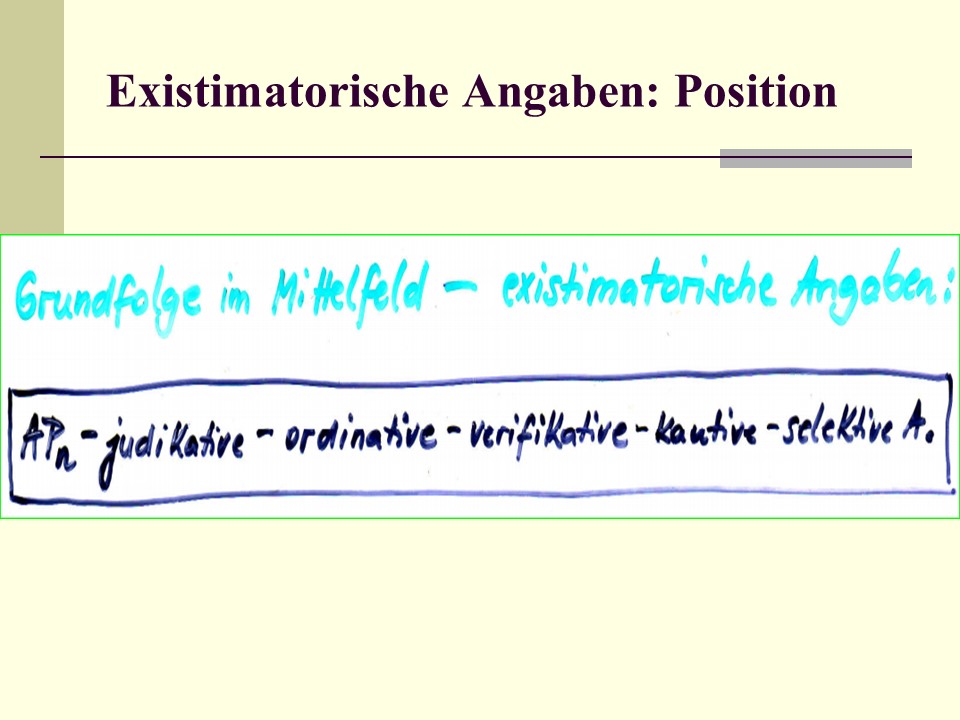 Existimatorische Angaben: Position
Grundfolge im Mittelfeld – existimatorische Angaben:
APn - judikative - ordinative - verifikative - kautive - selektive A.